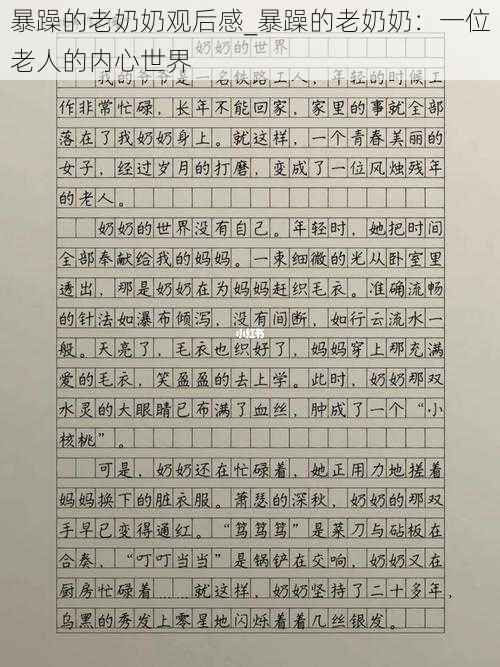 暴躁的老奶奶观后感_暴躁的老奶奶：一位
老人的内心世界
奶奶的世界
我的爷爷是一名铁路工人，年轻的时候工
作非常忙碌，长年不能回家，家里的事就全部
落在了我奶奶身上。就这样，一个青春美丽的
女子，经过岁月的打磨，变成了一位风烛残年
的老人。
奶奶的世界没有自己。年轻时，她把时间
全部奉献给我的妈妈。一束细微的光从卧室里
透出，那是奶奶在为妈妈赶织毛衣。准确流畅
的针法如瀑布倾泻，没有间断，如行云流水一
小红书
般。天亮了，毛衣也织好了，妈妈穿上那充满
爱的毛衣，笑盈盈的去上学。此时，奶奶那双
水灵的大眼睛已布满了血丝，肿成了一个“小
核桃”。
可是，奶奶还在忙碌着，她正用力地搓着
妈妈换下的脏衣服。萧瑟的深秋，奶奶的那双
手早已变得通红。“笃笃笃”是菜刀与砧板在
合奏，“叮叮当当”是锅铲在交响，奶奶又在
厨房忙碌着……就这样，奶奶坚持了二十多年，
乌黑的秀发上零星地闪烁着着几丝银发。